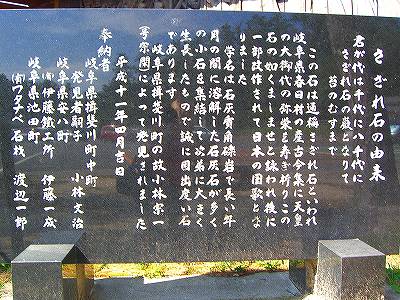 さざれ石の由来
君が代は千代に八千代に
さざれ石の巌となりて
苔のむすまで
この石は通称さざれ石といわれ
岐阜県春日村の産古今集に天皇
の大御代の弥栄と寿ぎ祈りこの
石の如くましませと詠われ後に
一部改作されて日本の国歌とな
りました
学名は石灰質角礫岩で長い年
月の間に溶解した石灰石が多く
の小石を集結して次第に大きく
生長したもので誠に目出度い石
であります
岐阜県揖斐川町の故小林宗一
(号宗閑)によって発見されました
平成十一年四月吉日
奉納者
岐阜県揖斐川町中町
発見者嗣子 小林文治
岐阜県安八町
㈲伊藤鐵工所 伊藤一成
岐阜県池田町
㈲ワタナベ石材 渡辺一郎